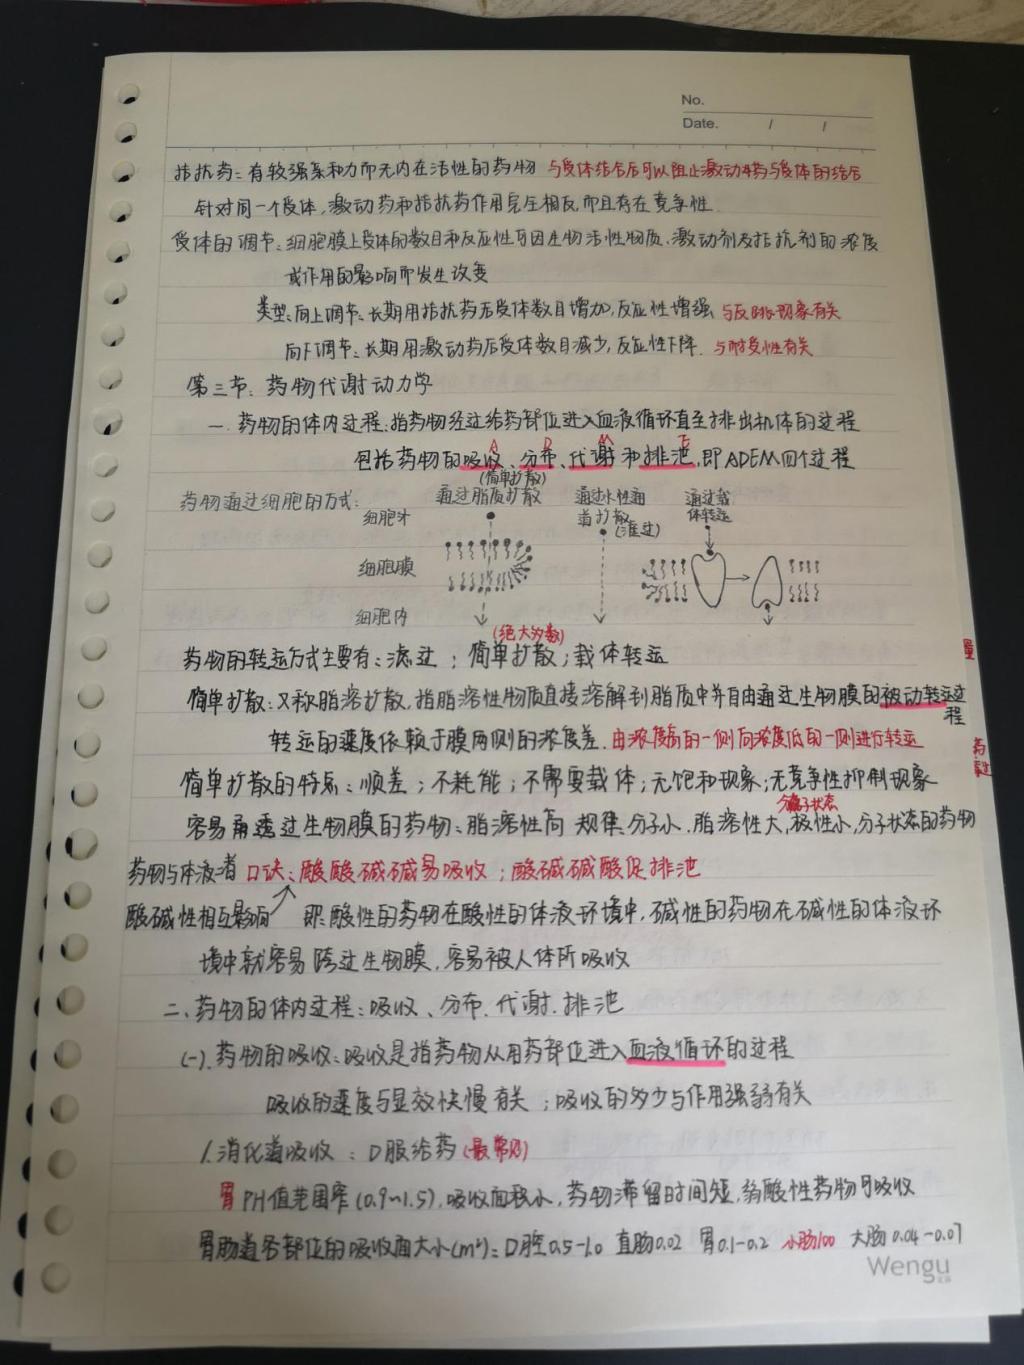 No.
Date. / /
拮抗药：有较强亲和力而无内在活性的药物 与受体结合后可以阻止激动药与受体的结合
针对同一个受体，激动药和拮抗药作用完全相反，而且存在竞争性
受体的调节：细胞膜上受体的数目和反应性可因生物活性物质、激动剂及拮抗剂的浓度
或作用的影响而发生改变
类型：向上调节：长期用拮抗药后受体数目增加，反应性增强 与反跳现象有关
向下调节：长期用激动药后受体数目减少，反应性下降. 与耐受性有关
第三节：药物代谢动力学
一. 药物的体内过程：指药物经过给药部位进入血液循环直至排出机体的过程
A D M E
包括药物的吸收、分布、代谢和排泄，即ADEM四个过程
(简单扩散)
药物通过细胞的方式： 通过脂质扩散 通过水性通道扩散(滤过) 通过载体转运
细胞外
细胞膜
细胞内
(绝大多数)
药物的转运方式主要有：滤过；简单扩散；载体转运
量
简单扩散：又称脂溶扩散，指脂溶性物质直接溶解到脂质中并自由通过生物膜的被动转运过程
转运的速度依赖于膜两侧的浓度差. 由浓度高的一侧向浓度低的一侧进行转运
药
简单扩散的特点：顺差；不耗能；不需要载体；无饱和现象；无竞争性抑制现象
分子状态
容易再透过生物膜的药物：脂溶性高 规律：分子小、脂溶性大，极性小，分子状态的药物
药物与体液者 口诀：酸酸碱碱易吸收；酸碱碱酸促排泄
酸碱性相互影响 即酸性的药物在酸性的体液环境中，碱性的药物在碱性的体液环
境中就容易跨过生物膜，容易被人体所吸收
二、药物的体内过程：吸收、分布、代谢、排泄
(一). 药物的吸收：吸收是指药物从用药部位进入血液循环的过程
吸收的速度与显效快慢有关；吸收的多少与作用强弱有关
1. 消化道吸收：口服给药(最常用)
胃PH值范围窄(0.9~1.5)，吸收面积小，药物滞留时间短，弱酸性药物可吸收
胃肠道各部位的吸收面大小(m²)：口腔0.5-1.0 直肠0.02 胃0.1-0.2 小肠100 大肠0.04-0.07
Wengu